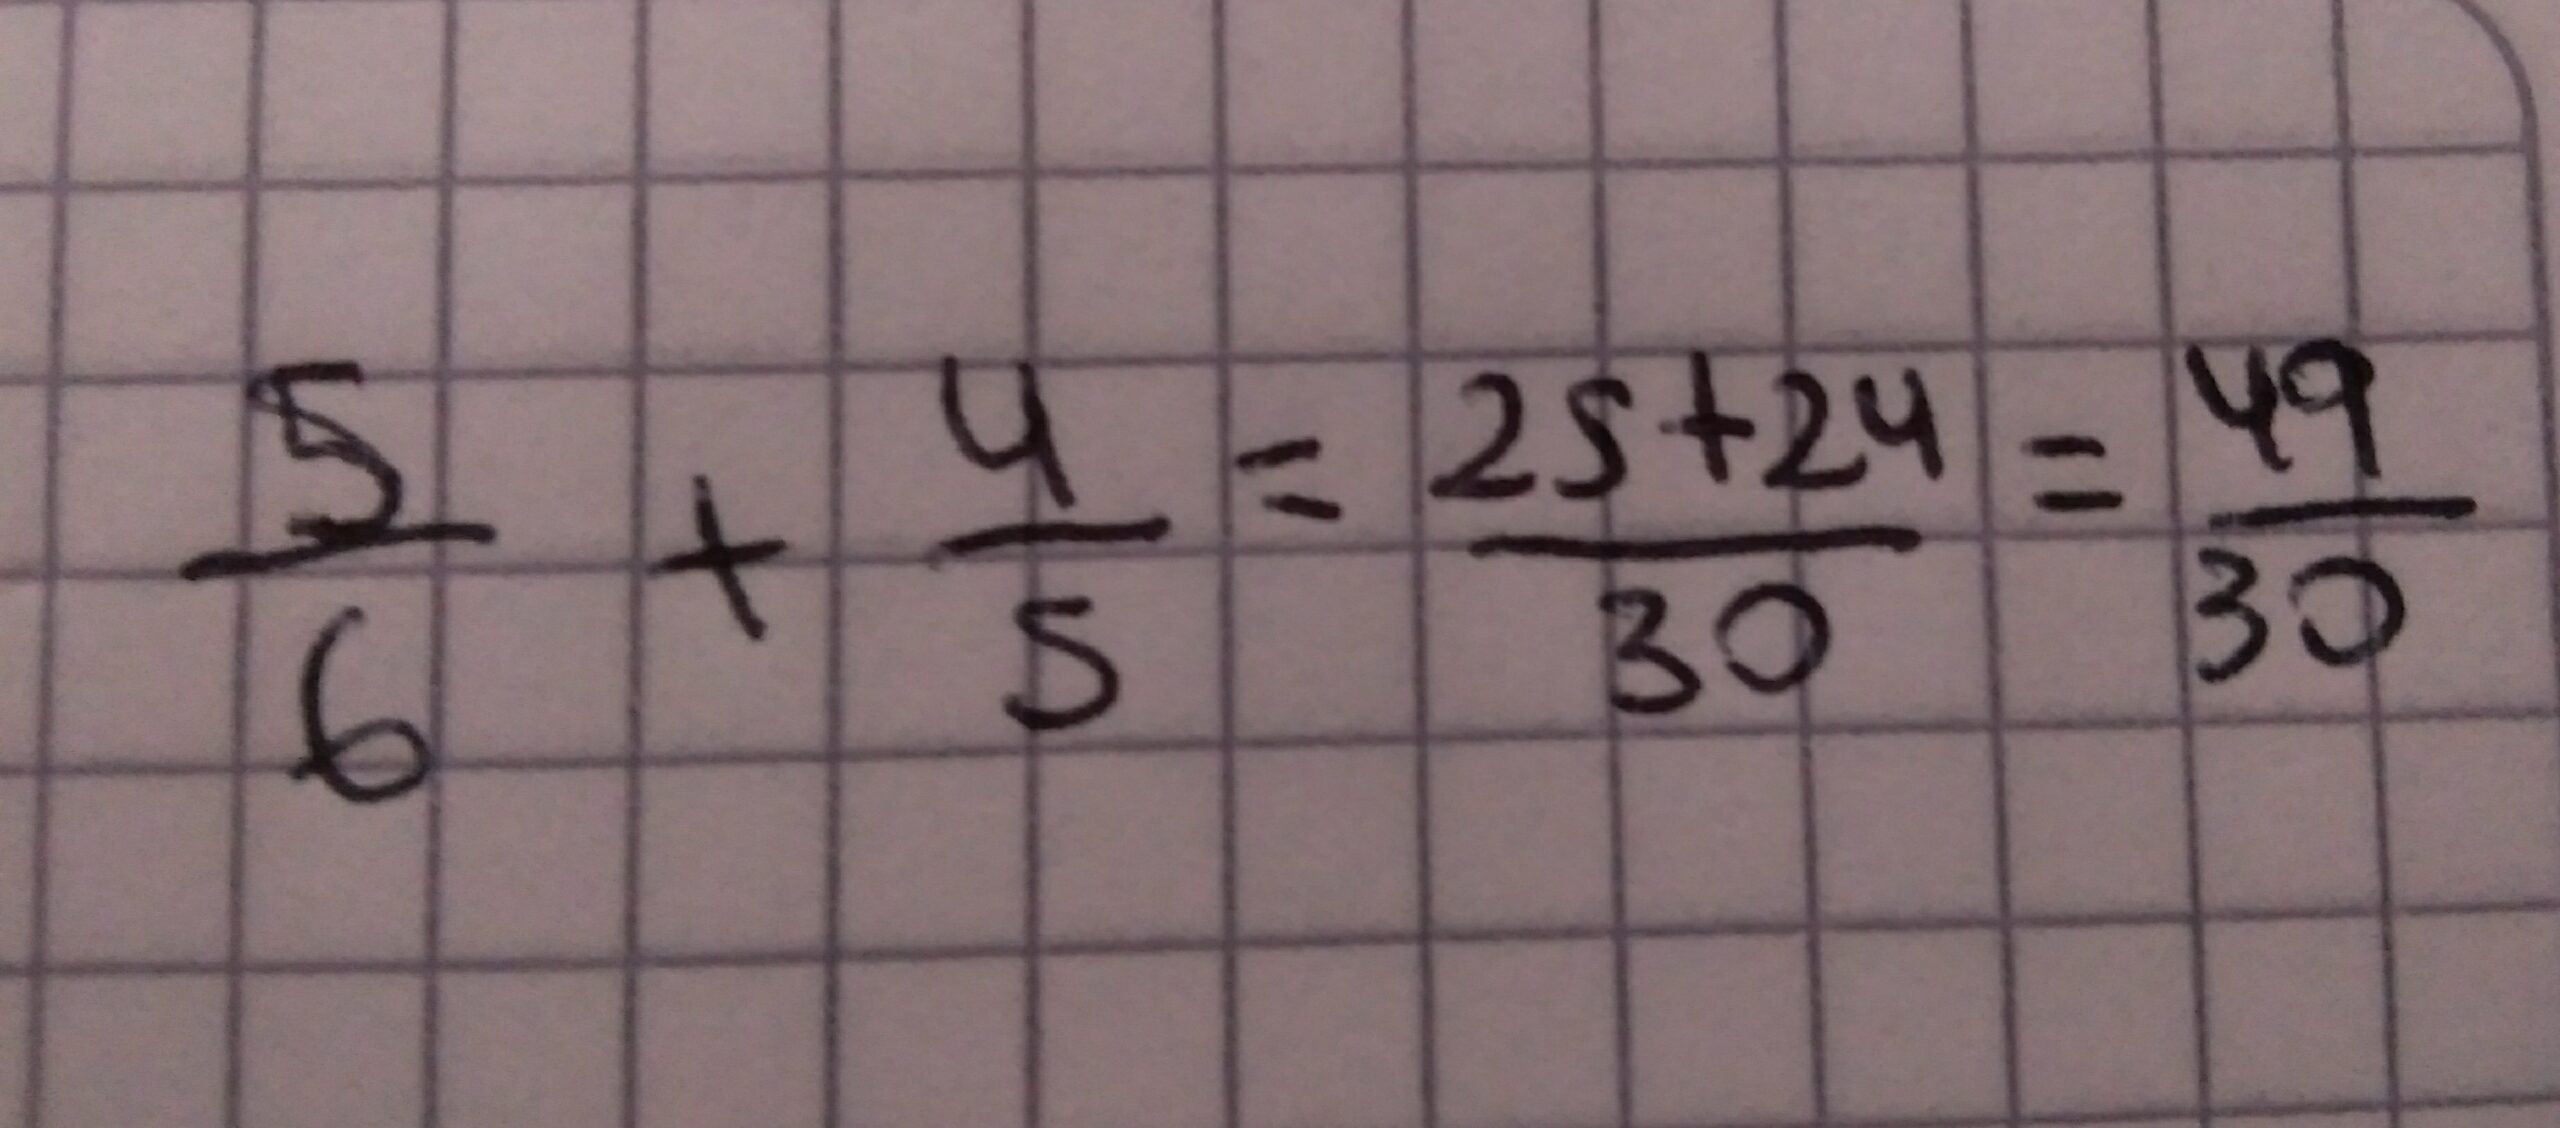 5/6 + 4/5 = 25+24/30 = 49/30